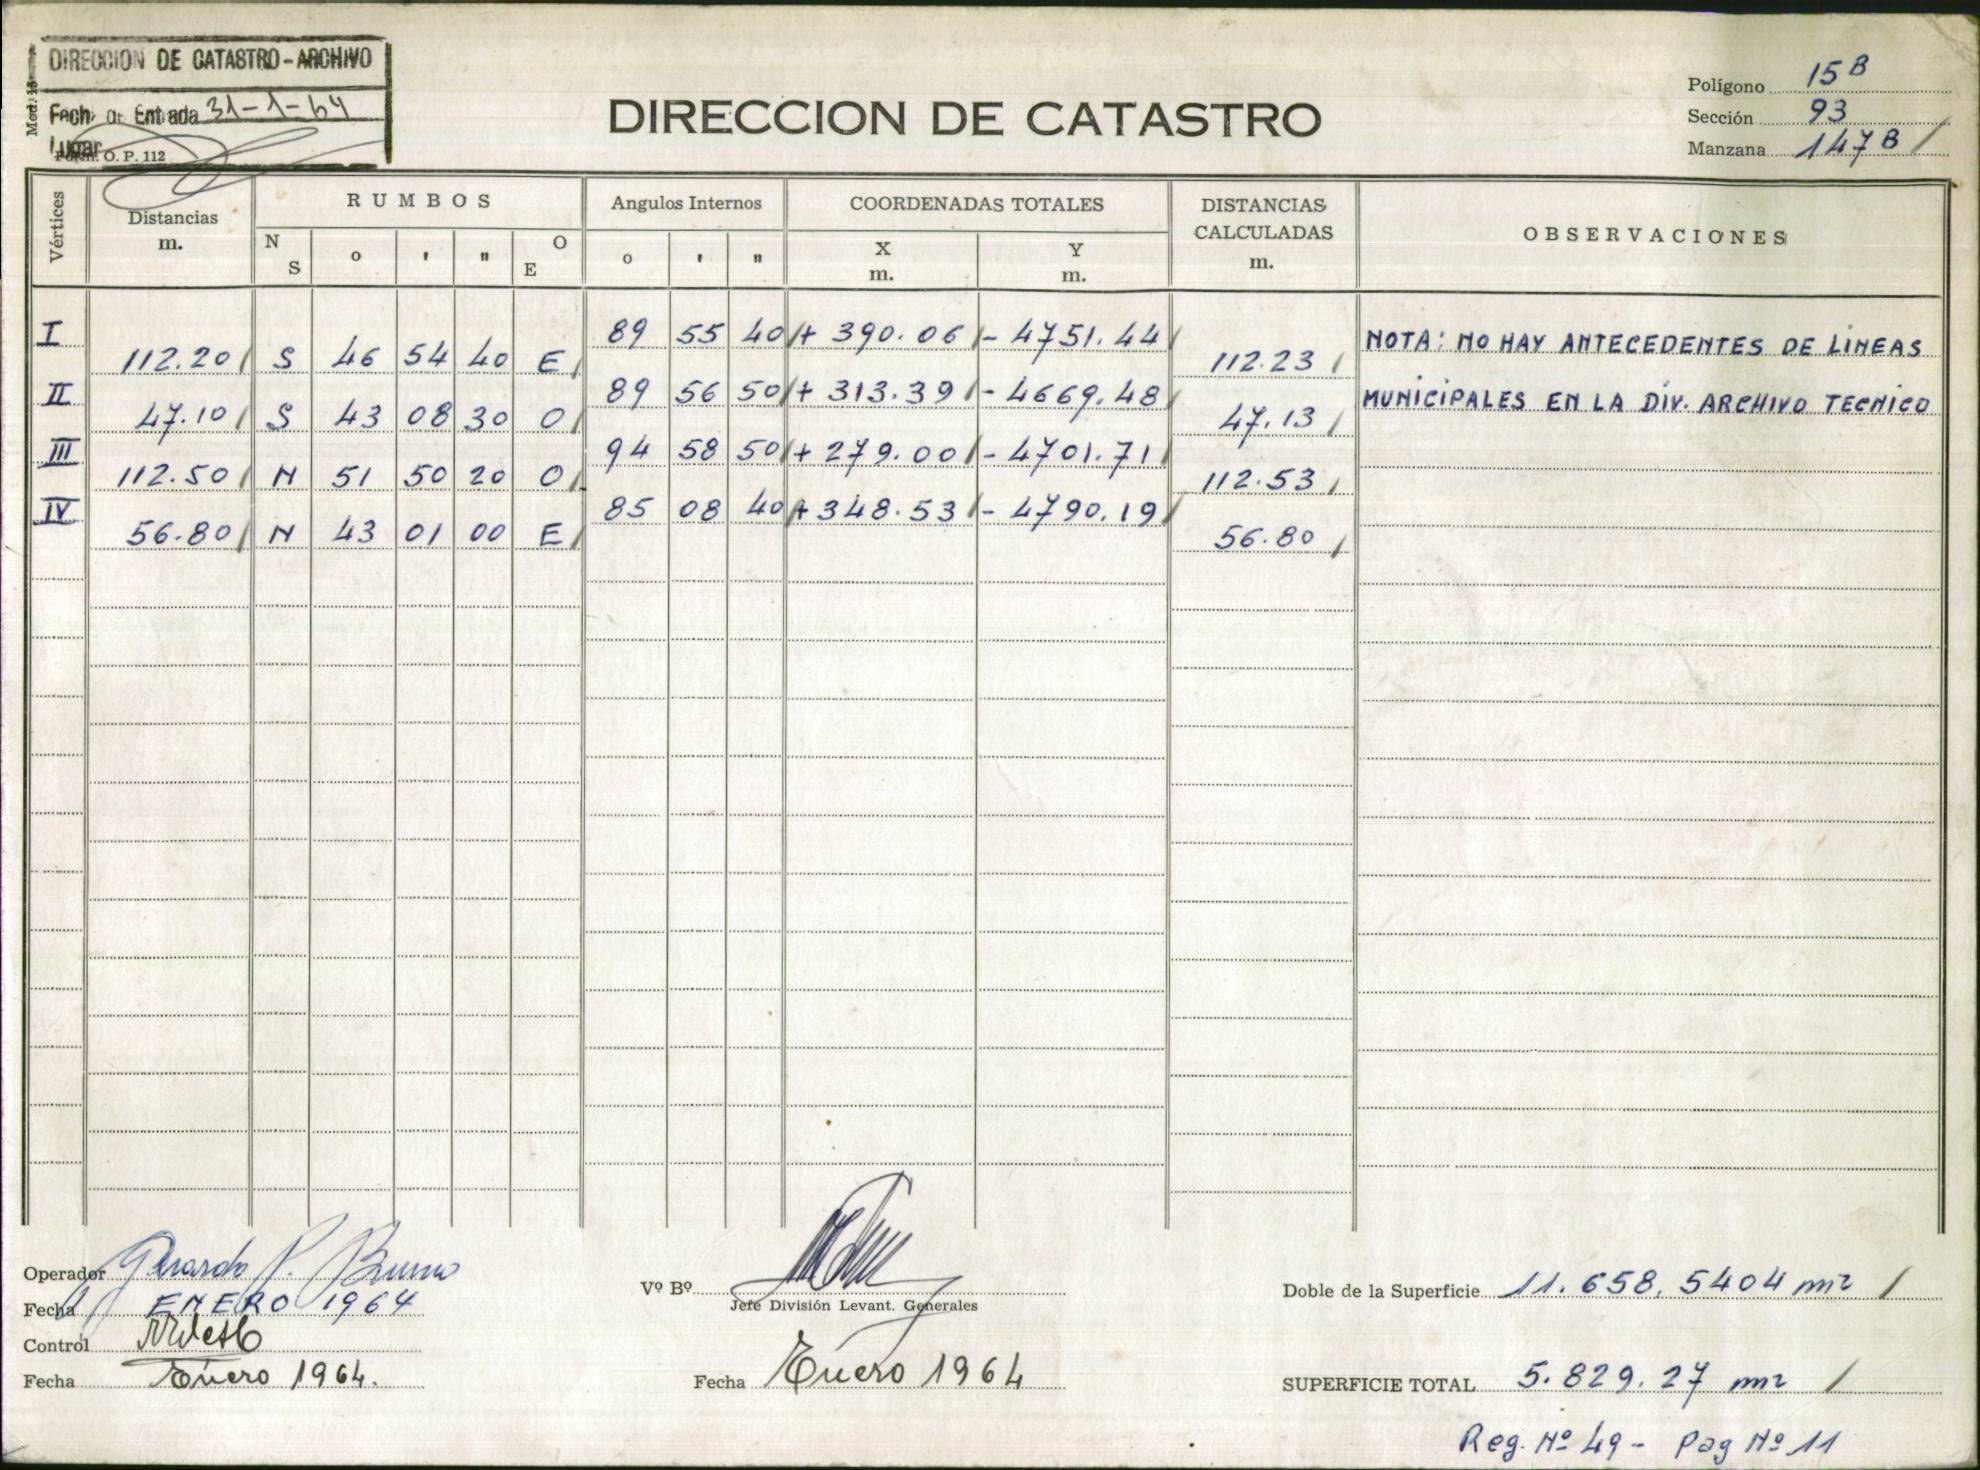 DIRECCION DE CATASTRO - ARCHIVO
Mod. 15
Fecha de Entrada 31-1-64
Lugar
Form. O. P. 112
DIRECCION DE CATASTRO
Polígono 15 B
Sección 93
Manzana 147 B /
Vértices
Distancias m.
RUMBOS
N S
o ' "
O E
Angulos Internos
o ' "
COORDENADAS TOTALES
X m.
Y m.
DISTANCIAS CALCULADAS m.
OBSERVACIONES
I 89 55 40 / + 390.06 / - 4751.44 /
112.20 / S 46 54 40 E / 112.23 /
II 89 56 50 / + 313.39 / - 4669.48 /
47.10 / S 43 08 30 O / 47.13 /
III 94 58 50 / + 279.00 / - 4701.71 /
112.50 / N 51 50 20 O / 112.53 /
IV 85 08 40 / + 348.53 / - 4790.19 /
56.80 / N 43 01 00 E / 56.80 /
NOTA: NO HAY ANTECEDENTES DE LINEAS
MUNICIPALES EN LA DIV. ARCHIVO TECNICO
Operador Gerardo P. Bruno
Fecha ENERO 1964
Control
Fecha Enero 1964.
Vº Bº
Jefe División Levant. Generales
Fecha Enero 1964
Doble de la Superficie 11.658,5404 m2 /
SUPERFICIE TOTAL 5.829.27 m2 /
Reg. Nº 49 - Pag Nº 11